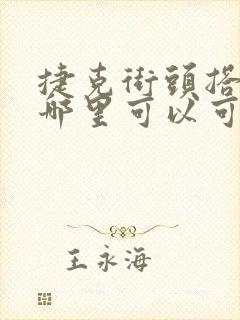 捷克街頭搭
哪里可以可
王永海